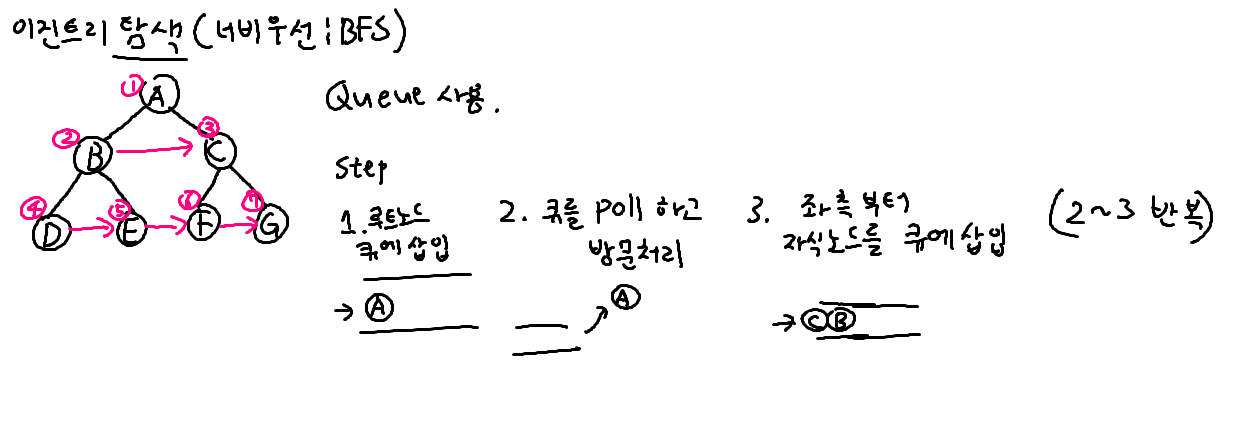 이진트리 탐색 (너비우선 : BFS)
① A
② B
③ C
④ D
⑤ E
⑥ F
⑦ G
Queue 사용.
Step
1. 루트노드
큐에 삽입
→ A
2. 큐를 poll 하고
방문처리
A
3. 좌측 부터
자식노드를 큐에 삽입
→ C B
(2~3 반복)